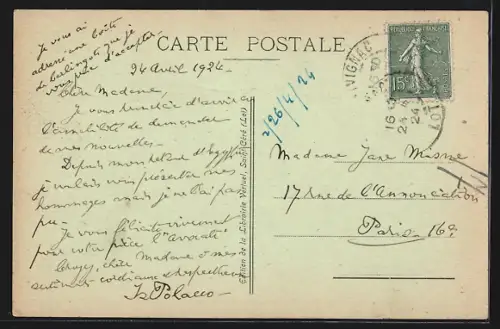 Je vous ai
adressé une boîte
de berlingots que je
vous prie d'accepter
CARTE POSTALE
24 Avril 1924
Chère Madame,
Je vous remercie d'avoir
l'amabilité de demander
de mes nouvelles.
Depuis mon retour d'Egypte
je voulais vous présenter mes
hommages mais je ne l'ai pas
pu.
Je vous félicite vivement
pour votre pièce l'"avocate"
Croyez, chère Madame à mes
sentiments cordiaux et respectueux
Polacco
Edition de la Librairie Vertuel, Saint-Céré (Lot)
2/26/4/24
REPUBLIQUE FRANÇAISE
15
16
24
24
LOT
Madame Jane
17 rue de l'Annonciation
Paris 16e